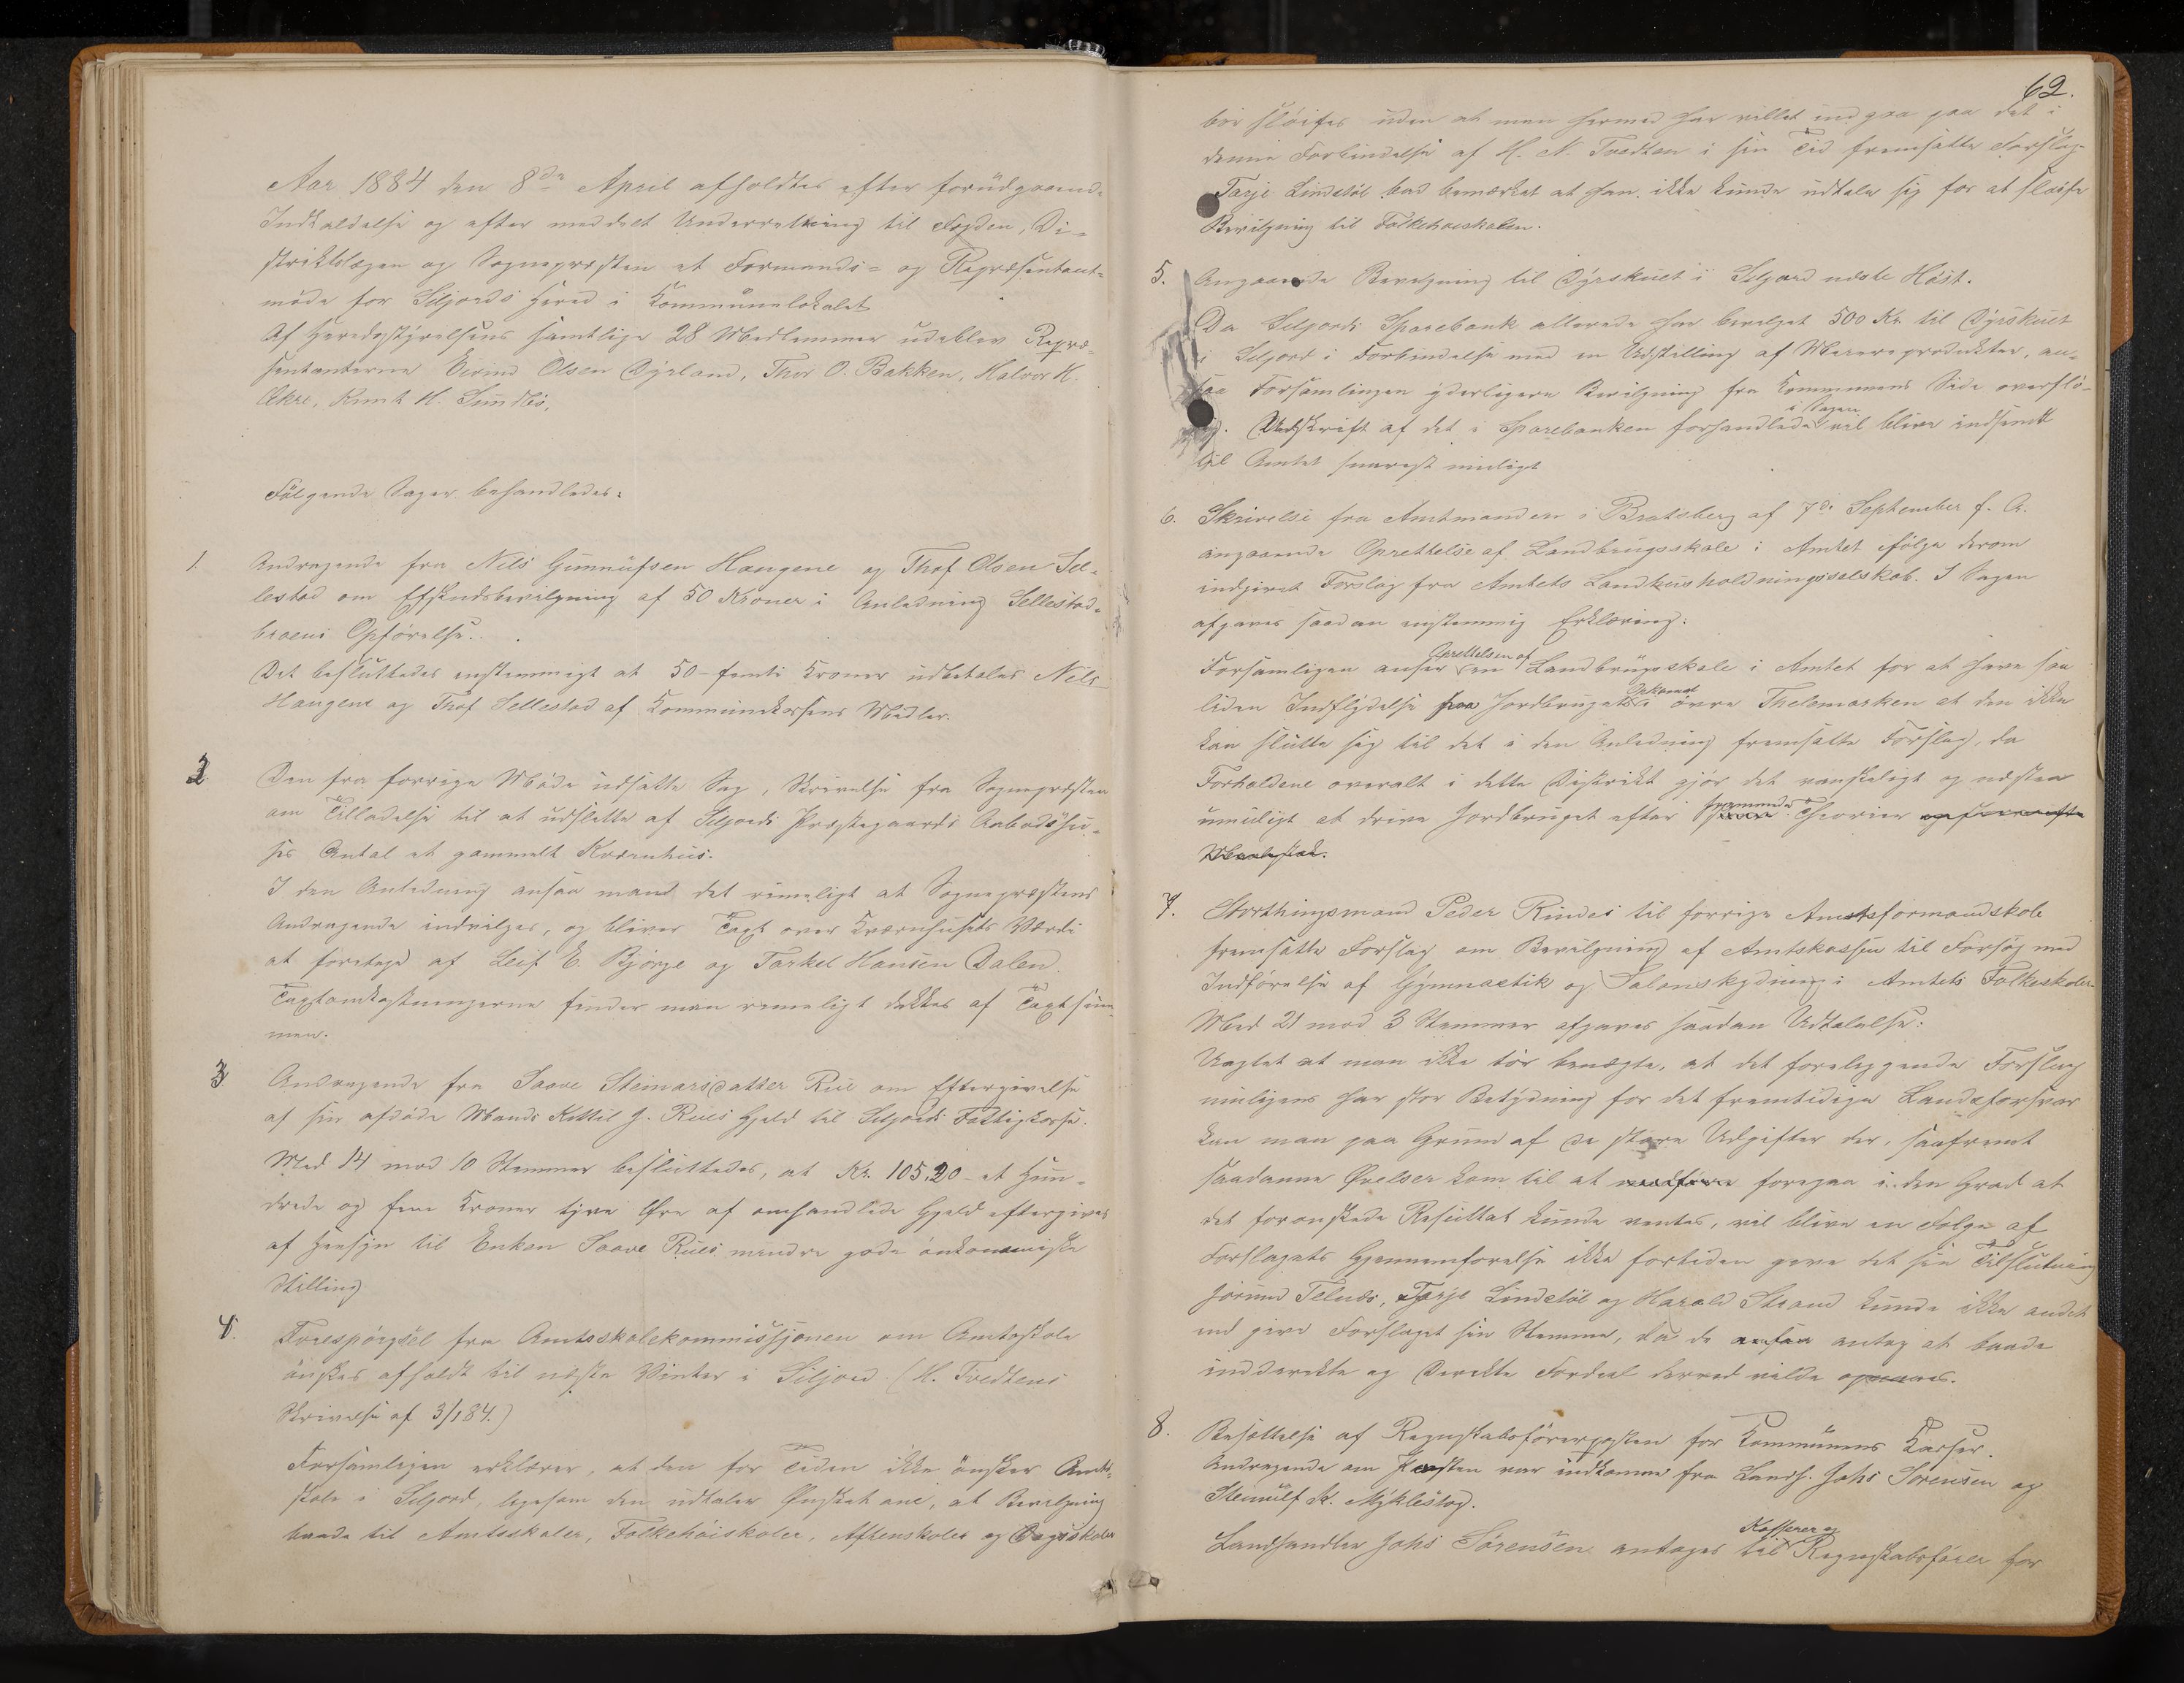 Aar 1884 den 8de April afholdtes efter forudgaaende
Indkaldelse og efter meddelt Underretning til Fogden, Di-
striktslægen og Sognepræsten et Formands- og Repræsentant-
möde for Siljords Hered i Kommunelokalet
Af Heredsstyrelsens samtlige 28 Medlemmer udeblev Repræ-
sentanterne Eivind Olsen Dyrland, Thor O. Bakken, Halvor H.
Ekre, Knut H. Sundbö,
Fölgende Sager behandledes:
1. Andragende fra Nils Gunnufsen Haugene og Thof Olsen Sel-
lestad om Efskudsbevilgning af 50 Kroner i Anledning Sellestad-
broens Opförelse.
Det besluttedes enstemmigt at 50 - femti Kroner udbetales Nils
Haugene og Thof Sellestad af Kommunekassens Midler.
2. Den fra forrige Möde udsatte Sag, Skrivelse fra Sognepræsten
om Tilladelse til at udslette af Seljords Præstegaards Aabodshu-
ses Antal et gammelt Kværnhus.
I den Anledning ansaa mand det rimeligt at Sognepræstens
Andragende indvilges, og bliver Taxt over Kværnhusets Værdi
at foretage af Leif E. Björge og Tarkel Hansen Dalen.
Taxtomkostningerne finder man rimeligt dækkes af Taxtsum-
men.
3 Andragende fra Saave Steinarsdatter Rue om Eftergivelse
af sin afdöde Mands Kettil G. Rues Gjeld til Seljords Fattigkasse.
Med 14 mod 10 Stemmer besluttedes, at Kr. 105,20 - et Hun-
drede og fem Kroner tyve Øre af omhandlede Gjeld eftergives
af Hensyn til Enken Saave Rues mindre gode önkonomiske
Stilling
4. Forespörgsel fra Amtsskolekommissjonen om Amtsskole
önskes afholdt til næste Vinter i Siljord. (H. Tvedtens
Skrivelse af 3/1 84.)
Forsamligen erklærer, at den for Tiden ikke önsker Amts-
skole i Seljord, ligesom den udtaler Ønsket om, at Bevilgning
baade til Amtsskoler, Folkehöiskoler, Aftenskoler og Dagsskoler
62.
bör slöifes uden at man hermed har villet indgaa paa det i
denne Forbindelse af H. N. Tvedten i sin Tid fremsatte Forslag
Tarje Lindstöl bad bemærket at han ikke kunde udtale sig for at slöife
Bevilgning til Folkehöiskolen.
5. Angaaende Bevilgning til Dyrskuet i Seljord næste Höst.
Da Seljords Sparebank allerede har bevilget 500 Kr. til Dyrskuet
i Seljord i Forbindelse med en Udstilling af Meieriprodukter, an-
saa Forsamlingen yderligere Bevilgning fra Kommunens Side overflö-
dig. Udskrift af det i Sparebanken forhandlede i Sagen vil blive indsendt
til Amtet snarest muligt
6. Skrivelse fra Amtmanden i Bratsberg af 7de September f. A.
angaaende Oprettelse af Landbrugsskole i Amtet ifölge derom
indgivet Forslag fra Amtets Landhusholdningsselskab. I Sagen
afgaves saadan enstemmig Erklæring:
Forsamligen anser Oprettelsen af en Landbrugsskole i Amtet for at have saa
liden Indflydelse paa Jordbrugets Opkomst i övre Thelemarken at den ikke
kan slutte sig til det i den Anledning fremsatte Forslag, da
Forholdene overalt i dette Distrikt gjör det vanskeligt og næsten
umuligt at drive Jordbruget efter fremmede Theorier
7. Storthingsmand Peder Rindes til forrige Amtsformandskab
fremsatte Forslag om Bevilgning af Amtskassen til Forsög med
Indförelse af Gymnastik og Salonskydning i Amtets Folkeskoler
Med 21 mod 3 Stemmer afgaves saadan Udtalelse:
Uagtet at man ikke tör benægte, at det foreliggende Forslag
muligens har stor Betydning for det fremtidige Landsforsvar
kan man paa Grund af de store Udgifter der, saafremt
saadanne Øvelser kom til at foregaa i den Grad at
det foronskede Resultat kunde ventes, vil blive en Folge af
Forslagets Gjennemforelse ikke fortiden give det sin Tilslutning
Jörund Telnæs, Tarje Lindstöl og Harald Strand kunde ikke andet
end give Forslaget sin Stemme, da de antog at baade
indderekte og Derekte Fordeel derved vilde opnaaes.
8. Besættelse af Regnskabsförerposten for Kommunens Kasser.
Andragende om Posten var indkommen fra Landh. Johs Sörensen og
Steinulf K. Myklestog.
Landhandler Johs Sörensen antages til Kasserer og Regnskabsförer for